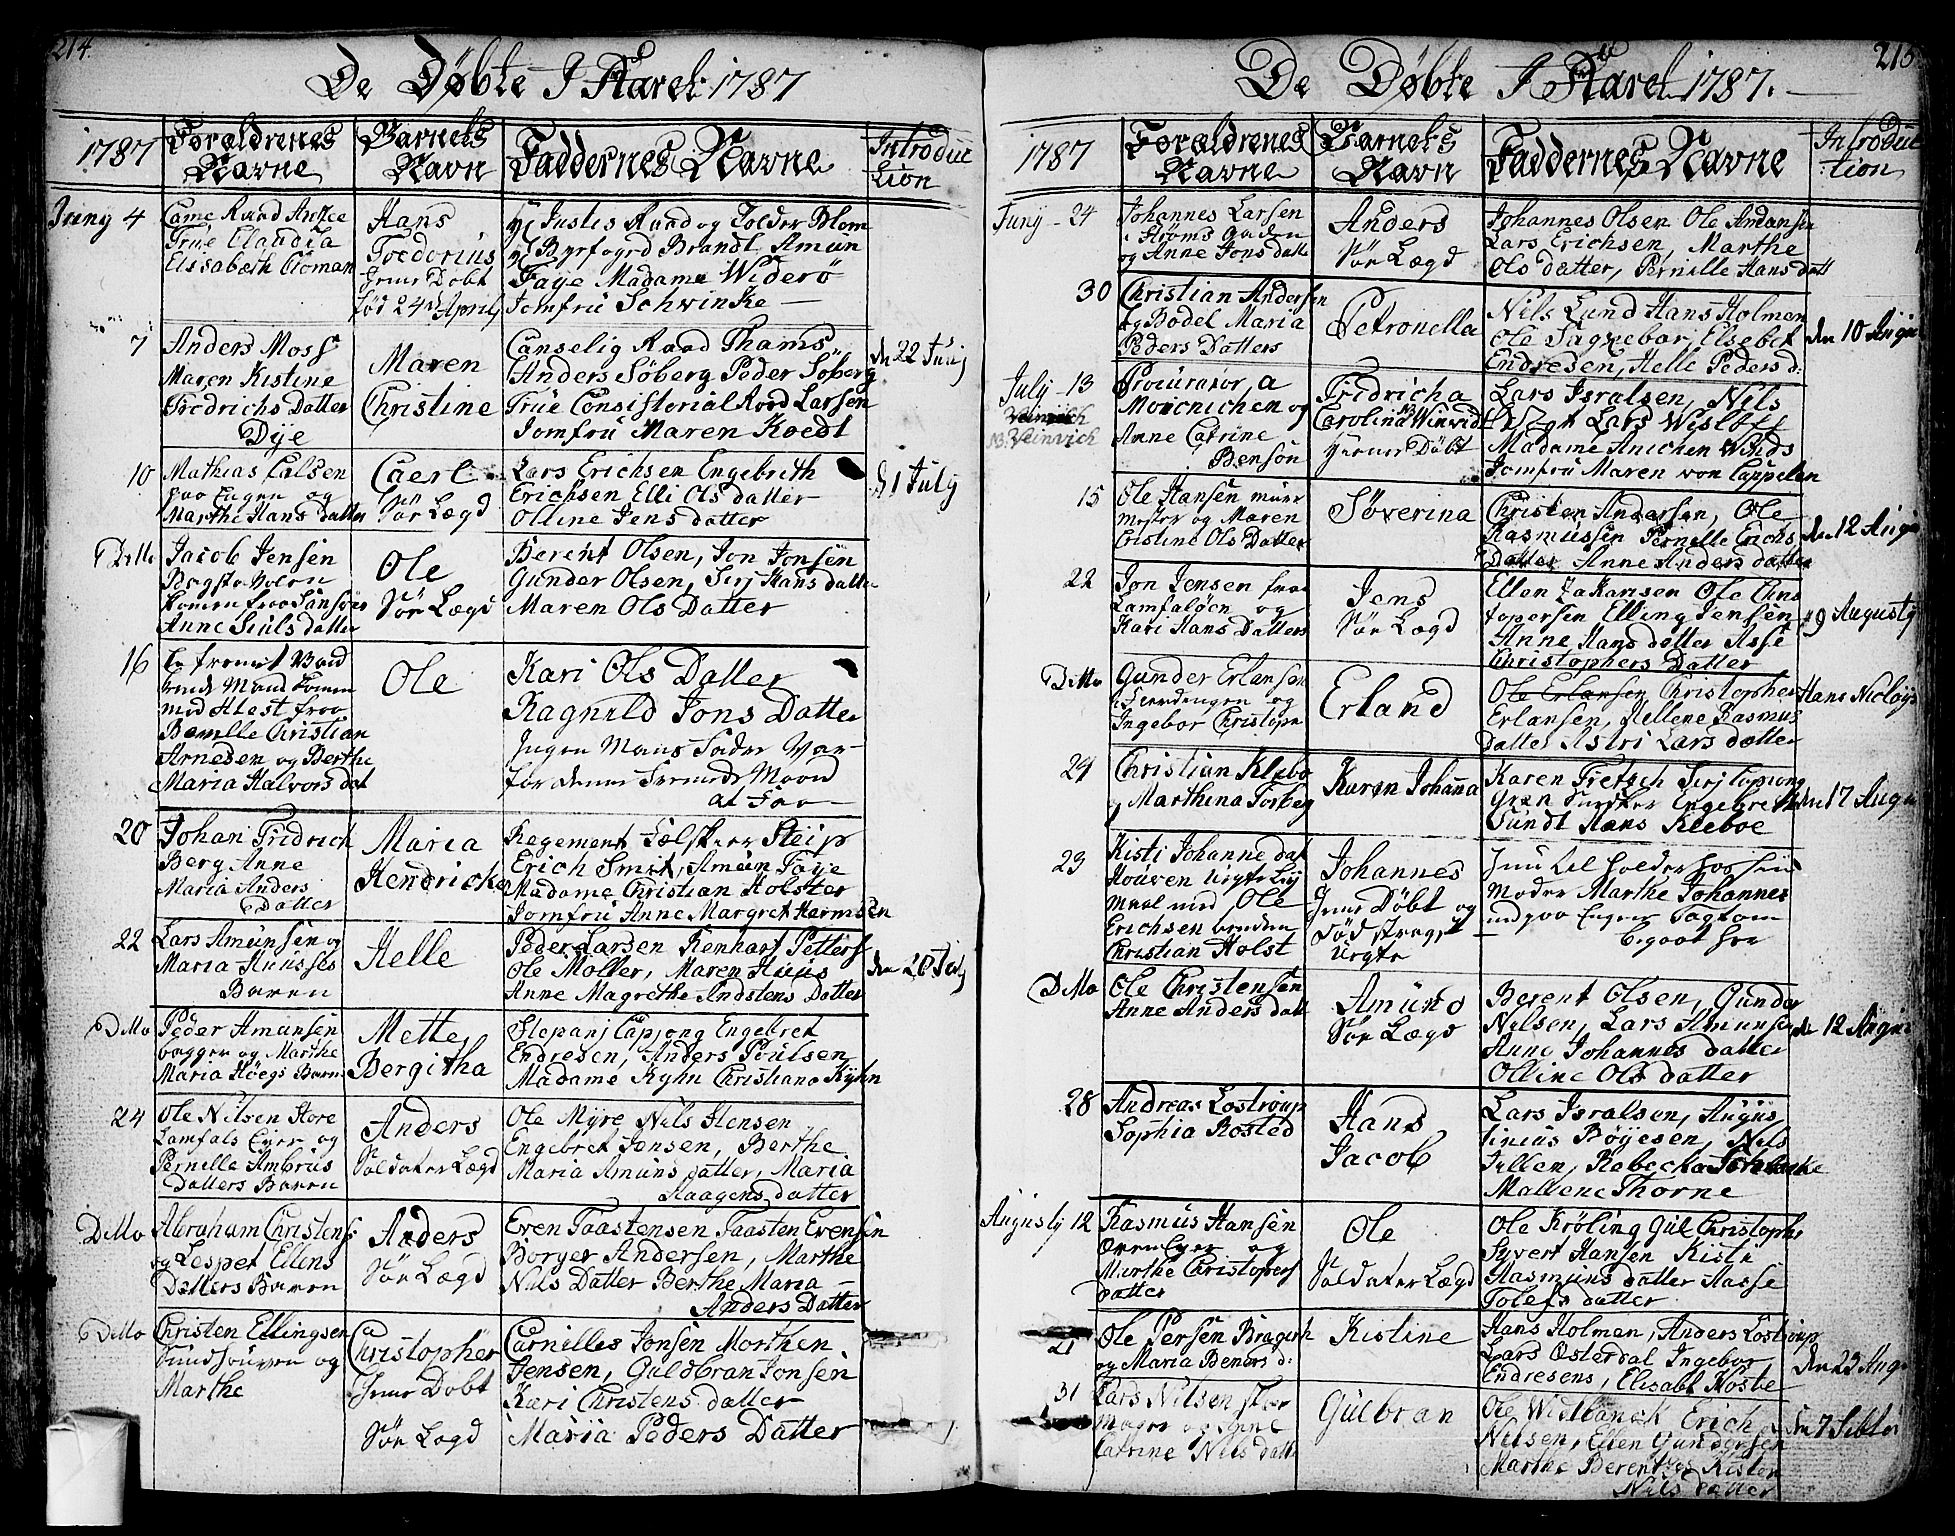 214.
De Døbte I Aaret 1787
1787
Forældrenes Navne
Barnets Navn
Faddernes Navne
Introduction
Juny 4
Came Raad Ancke
Frue Claudia
Elisabeth
Hans
Foedorius
Hiemе Døbt
Fød 24 April
Hr Justis Raad og Tolder Blom
Hr Byefogd Brandt Amun
Faye Madame Widerø
Jomfru Schwinke
7
Anders Moss
Maren Kistine
Fredrichs Datter
Dye
Maren
Christine
Canselig Raad Thams
Anders Søberg Peder Søberg
Frue Consistorial Raad Larsen
Jomfru Maren Koedt
dn 22 Junj
10
Mathias Calsen
paa Engen og
Marthe Hans datter
Caerl
Sør Lægd
Lars Erichsen Engebreth
Erichsen Elli Ols datter
Olline Jens datter
d 1 July
Ditto
Jacob Jensen
Anne datter
Ole
Sør Lægd
Berent Olsen, Jon Jonsen
Gunder Olsen, Sirj Hans datter
Maren Ols Datter
16
Et fremit Band
med Hest fraa
Christian
Arnesen og Berthe
Maria Halvors dat
Ole
Kari Ols Datter
Ragnild Jons Datter
Ingen Mans Fader Var
20
Johan Fridrich
Berg Anne
Maria Anders
Datter
Maria
Hendricke
Regement Felskier Steip
Erich Smit, Amun Faye
Madame Christian Holster
Jomfru Anne Margret Harmsen
22
Lars Amunsen og
Maria Huuses
Baren
Helle
Peder Larsen Renhart Petters
Ole Møller, Maren Huus
Anne Magrethe Andstens Datter
den 20 July
Ditto
Peder Amunsen
baggen og Marthe
Maria Høegs Barn
Mette
Bergitha
Stepanj Capjong Engebret
Endresen, Anders Poulsen
Madame Kyhn Christiana Kyhn
24
Ole Nilsen Store
Lamfals Eyer og
Pernille Ambrus
Datters Baren
Anders
Soldater Lægd
Ole Myre Nils Hensen
Engebret Jensen, Berthe
Maria Amuns datter, Maria
Haagens datter
Ditto
Abraham Christens
og Lespet Ellens
Datters Baren
Anders
Sør Lægd
Even Taastensen Taasten Evensen
Borger Andersen, Marthe
Nils Datter Berthe Maria
Anders Datter
Ditto
Christen Ellingsen
Sundhouven og
Marthe
Christopher
Hiemе Døbt
Sør Lægd
Carnilles Jonsen Morthen
Jensen, Guldbran Jonsen
Kari Christens datter
Maria Peders Datter
215
De Døbte I Aaret 1787.
1787
Forældrenes Navne
Barnets Navn
Faddernes Navne
Introduction
Juny 24
Johannes Larsen
i Strøms gaden
og Anne Jons datte
Anders
Sør Lægd
Johannes Olsen Ole Amdansen
Lars Erichsen, Marthe
Ols datter, Pernille Hans datt
30
Christian Andersen
og Bodel Maria
Peders Datters
Petronella
Nils Lund Hans Holmen
Ole Sagrebar, Elsebet
Endresen, Helle Peders d:
den 10 Augu
July 13
13. Veinvich
Procurator, a
Moicnichen og
Anne Catrine
Benson
Fridricha
Carolina Winvid
Hieme Døbt
Lars Isralsen, Nils
Vogt Lars Wisløff
Madame Anichen Winds
Jomfru Maren von Cappelen
15
Ole Hansen muur
mester og Maren
Cristine Ols Datter
Søverina
Christen Andersen, Ole
Rasmussen Pernelle Erichs
Datter Anne Anders datter
den 12 Augu
22
Jon Jensen fraa
Lamfaløen og
Kari Hans Datters
Jens
Sør Lægd
Ellen Jakansen Ole Chris
topersen Elling Jensen
Anne Hans datter Asse
Christophers Datter
d 9 Augusty
Ditto
Gunder Erlansen
og
Ingebor Christophe
Erland
Ole Erlansen Christopher
Erlansen, Hellene Rasmus
Datter Astri Lars datter
Hans Nicloys
29
Christian Klebo
og Marthina Forberg
Karen Johanna
Karen Fretsch Sirj Copiong
Engebreth
Sundt Hans Kleboe
den 17 Augu
23
Kisti Johanne dat
Houven
med Ole
Erichsen
Christian Holst
Johannes
Hieme Døbt og
Død strags
Moder Marthe Johannes
Ditto
Ole Christensen
Anne Anders datt
Amund
Sør Lægd
Berent Olsen, Gunder
Nilsen, Lars Amunsen
Anne Johannes datter
Olline Ols datter
d 12 Augu
28
Andreas Lostrup
Sophia Rosted
Hans
Jacob
Lars Isralsen, Augus
tinius Bøyesen, Nils
Jullen, Rebecka
Mallene Thorne
Augusty 12
Rasmus Hansen
Øren Eyer og
Marthe Christopers
Datter
Ole
Soldater Lægd
Ole Krøling Gul Christophe
Syvert Hansen Kisti
Rasmuns datter Aasse
Tolefs datter
21
Ole Persen Brager
og Maria Beners d:
Kistine
Hans Holmen, Anders Lostrup
Lars Østerdal Ingebor
Endresens, Elisabt Moste
den 23 Aug
31
Lars Nilsen
Mager og Anne
Catrine Nils datt
Gulbran
Ole Widbanck Erich
Nilsen, Ellen Gundersen
Marthe Berentses Kisten
Nils Datter
den 7 Sebter